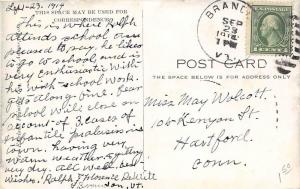 Sept-23-1914
THIS SPACE MAY BE USED FOR
CORRESPONDENCE
This is where Ralph
attends school, am
pleased to say, he likes
to go to school and is
very Enthusiastic with
his school work.
school will close on
account of 3 cases of
infantile paralysis in
town, having very
warm weather, & they
very dry. All well, best
wishes, Ralph & Florence
Brandon, Vt.
BRANDON
SEP
23
1914
1 PM
VT.
POST CARD
THE SPACE BELOW IS FOR ADDRESS ONLY
Miss May Wolcott.
Kenyon St.
Hartford
Conn.